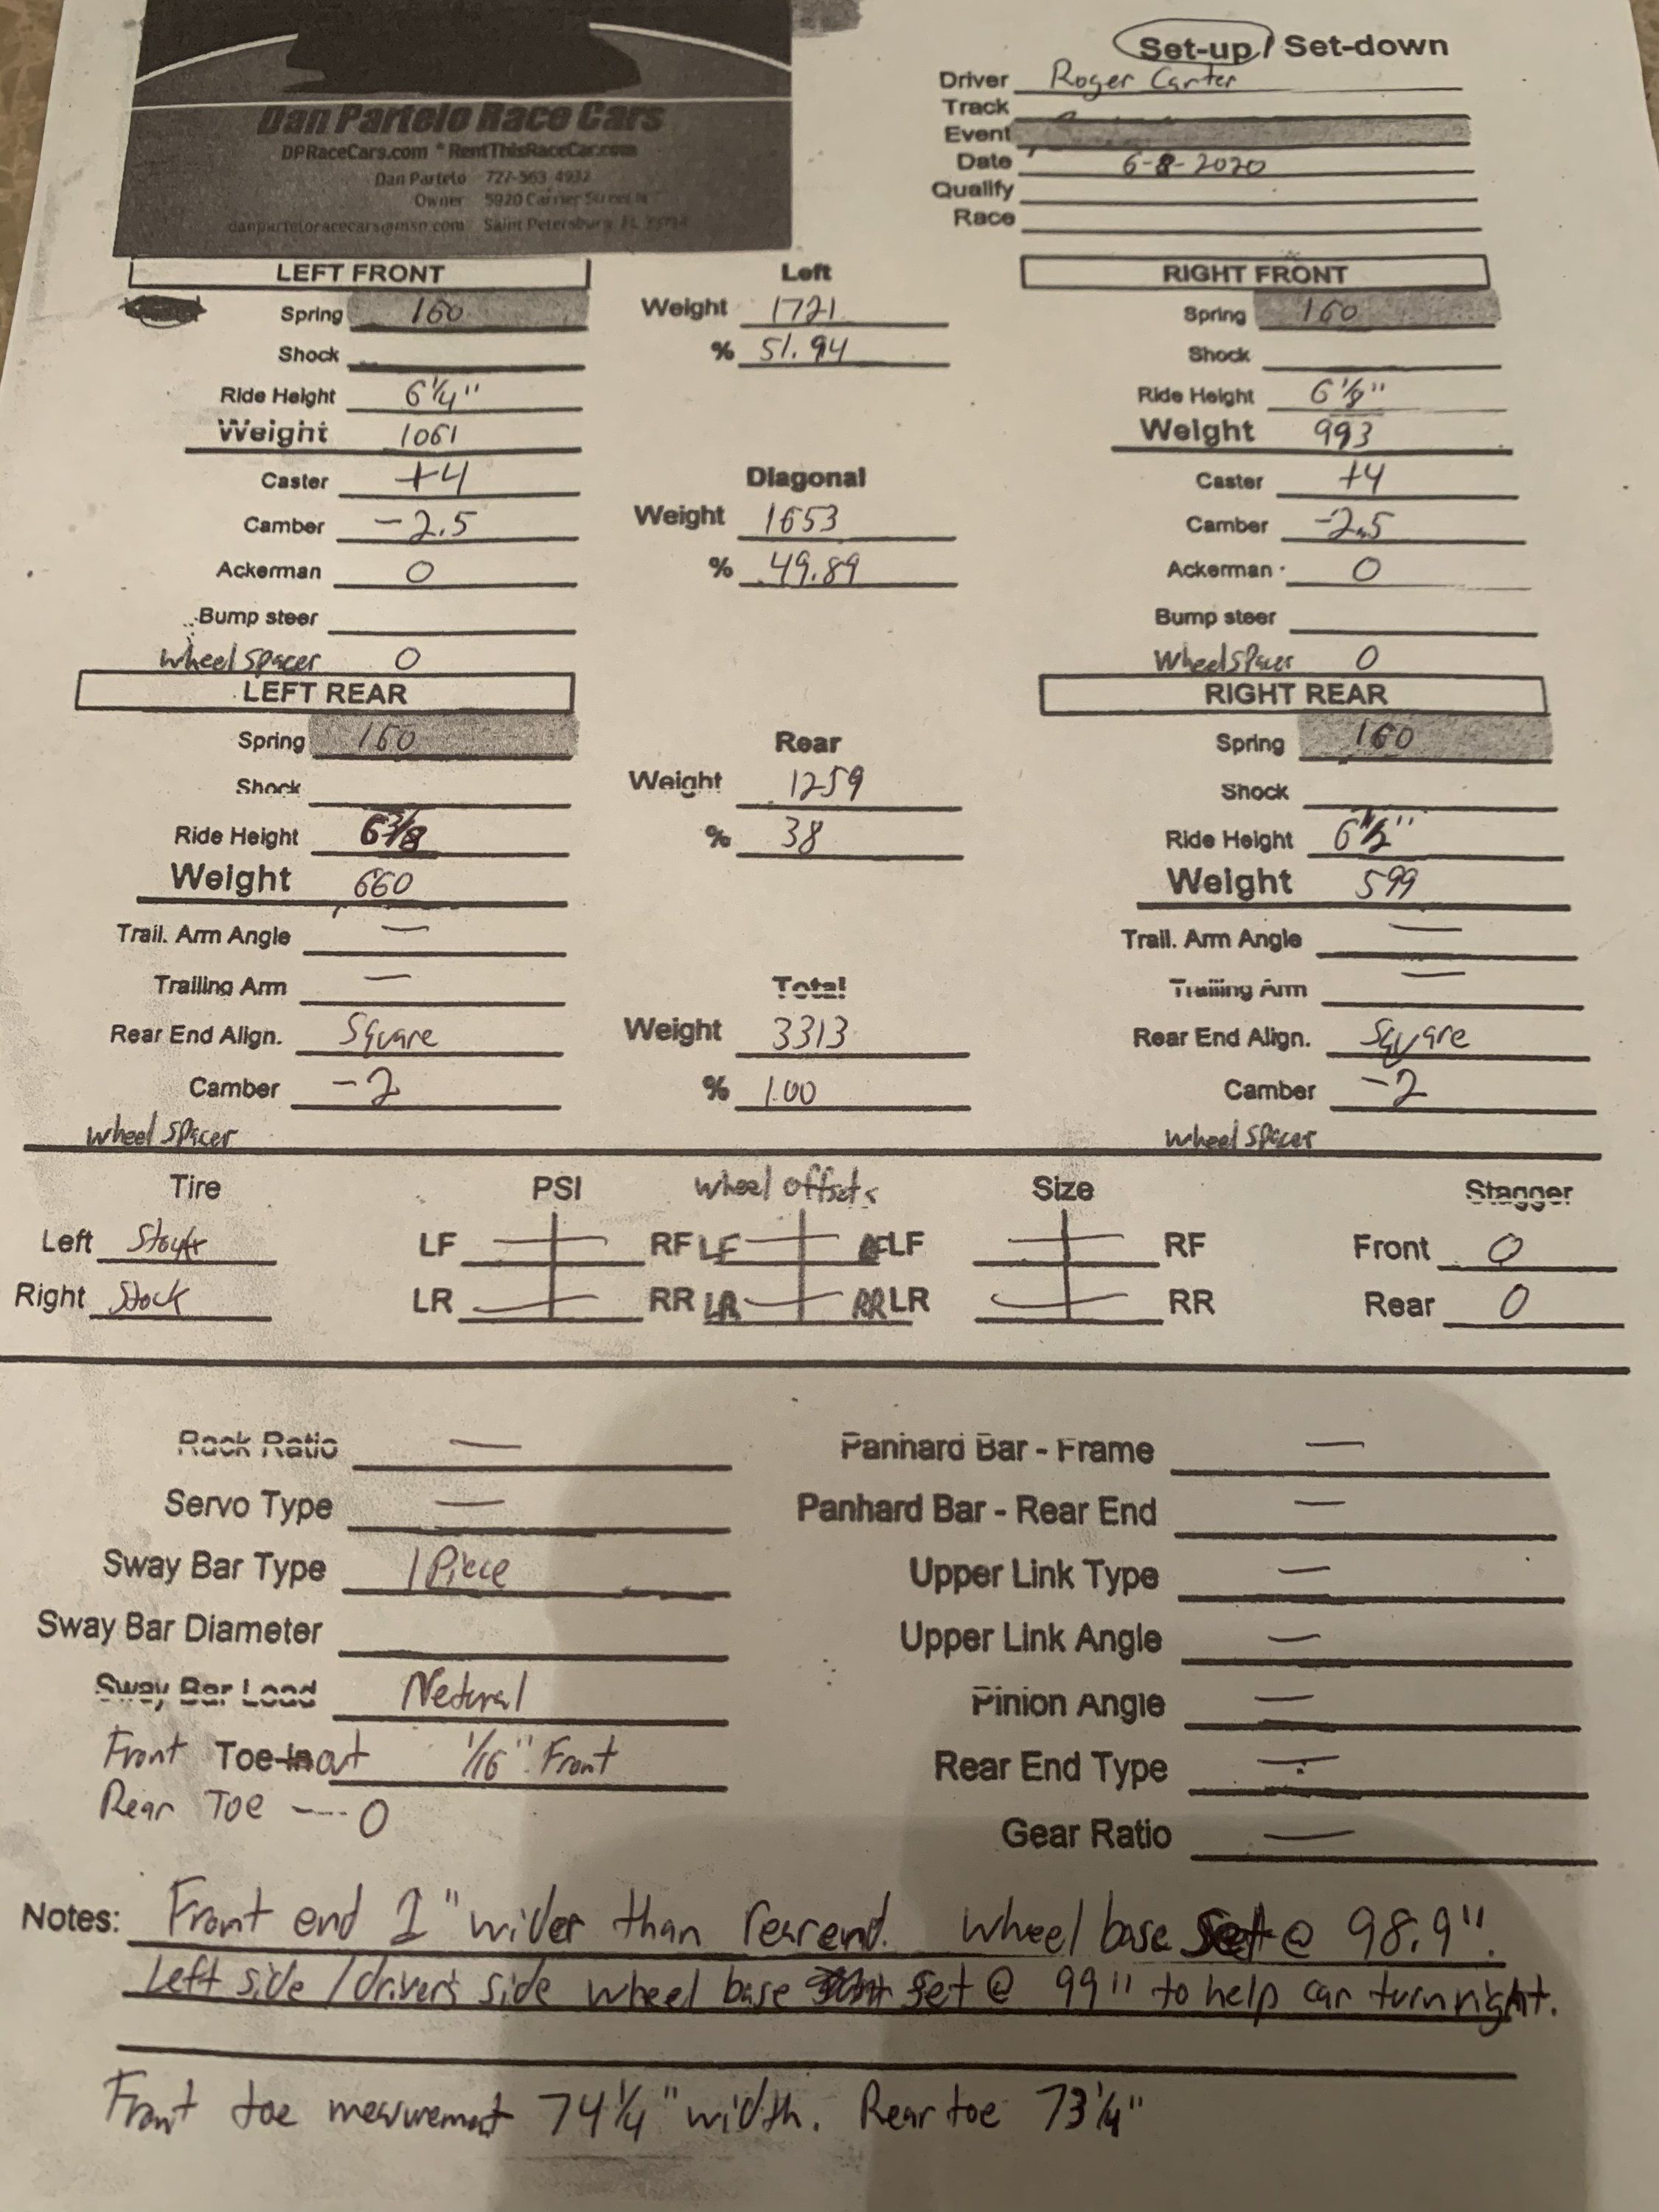 Set-up / Set-down
Driver Roger Carter
Track
Event
Date 6-8-2020
Qualify
Race
Dan Partelo Race Cars
DPRaceCars.com * RentThisRaceCar.com
Dan Partelo 727-563-4932
Owner 5920 Carrier Street N
danparteloracecars@msn.com Saint Petersburg, FL
LEFT FRONT Left RIGHT FRONT
Spring 160 Weight 1721 Spring 160
Shock % 51.94 Shock
Ride Height 6 1/4" Ride Height 6 1/8"
Weight 1061 Weight 993
Caster +4 Diagonal Caster +4
Camber -2.5 Weight 1653 Camber -2.5
Ackerman 0 % 49.89 Ackerman 0
Bump steer Bump steer
Wheel Spacer 0 Wheel Spacer 0
LEFT REAR RIGHT REAR
Spring 160 Rear Spring 160
Shock Weight 1259 Shock
Ride Height 6 3/8 % 38 Ride Height 6 1/2"
Weight 660 Weight 599
Trail. Arm Angle — Trail. Arm Angle —
Trailing Arm — Total Trailing Arm —
Rear End Align. Square Weight 3313 Rear End Align. Square
Camber -2 % 1.00 Camber -2
wheel Spacer wheel Spacer
Tire PSI wheel offsets Size Stagger
Left LF RF LF LF RF Front 0
Right Stock LR RR LR RR LR RR Rear 0
Rack Ratio — Panhard Bar - Frame —
Servo Type — Panhard Bar - Rear End —
Sway Bar Type 1 Piece Upper Link Type —
Sway Bar Diameter Upper Link Angle —
Sway Bar Load Netural Pinion Angle —
Front Toe-out 1/16" Front Rear End Type —
Rear Toe --- 0
Gear Ratio —
Notes: Front end 1" wider than rear end. Wheel base Set @ 98.9".
Left side / driver's side wheel base set @ 99" to help car turn right.
Front toe measurement 74 1/4" width. Rear toe 73 1/4"